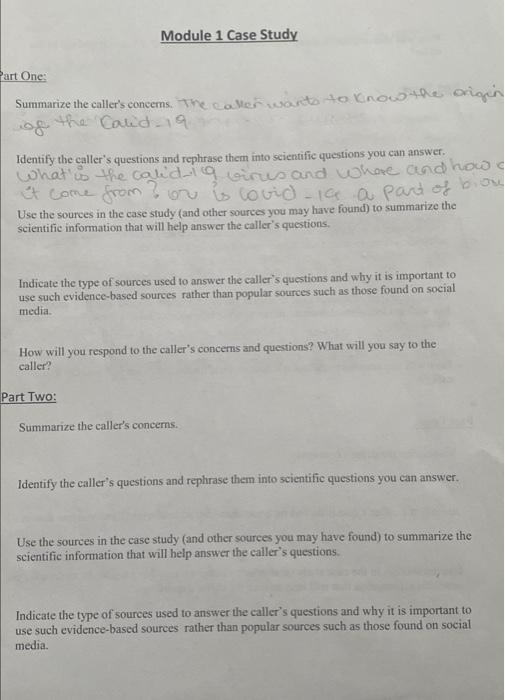 Module 1 Case Study
Part One:
Summarize the caller's concerns. The caller wants to know the origin
of the Covid-19
Identify the caller's questions and rephrase them into scientific questions you can answer.
what is the covid-19 virus and where and how
it come from? or is covid-19 a part of
Use the sources in the case study (and other sources you may have found) to summarize the
scientific information that will help answer the caller's questions.
Indicate the type of sources used to answer the caller's questions and why it is important to
use such evidence-based sources rather than popular sources such as those found on social
media.
How will you respond to the caller's concerns and questions? What will you say to the
caller?
Part Two:
Summarize the caller's concerns.
Identify the caller's questions and rephrase them into scientific questions you can answer.
Use the sources in the case study (and other sources you may have found) to summarize the
scientific information that will help answer the caller's questions.
Indicate the type of sources used to answer the caller's questions and why it is important to
use such evidence-based sources rather than popular sources such as those found on social
media.